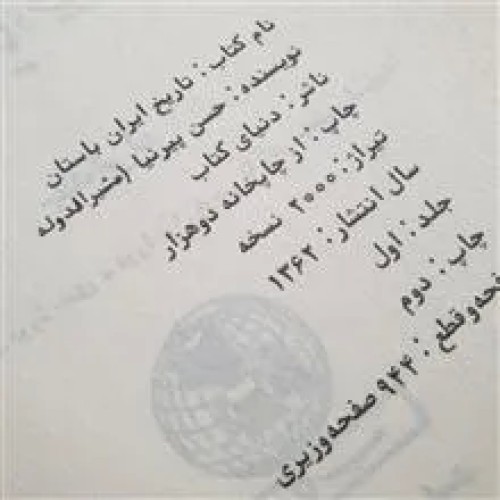 نام کتاب: تاریخ ایران باستان
نویسنده: حسن پیرنیا (مشیرالدوله
ناشر: دنیای کتاب
چاپ: از چاپخانه دوهزار
تیراژ: ۲۰۰۰ نسخه
سال انتشار: ۱۳۶۲
جلد: اول
چاپ: دوم
صفحه‌وقطع: ۹۴۴ صفحه‌وزیری